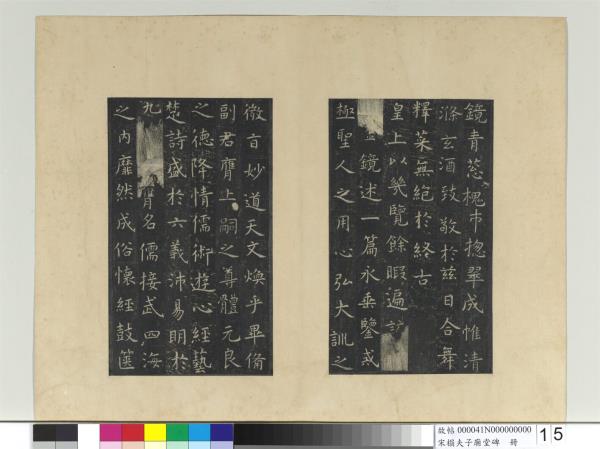 鏡青葱槐市揔翠成帷清
滌玄酒致敬於兹日合舞
釋菜無絶於終古
皇上以幾覽餘暇遍
鏡述一篇永垂鑒戒
極聖人之用心弘大訓之
微言妙道天文煥乎畢備
副君膺上嗣之尊體元良
之德降情儒術遊心經藝
楚詩盛於六義沛易明於
九胥名儒接武四海
之内靡然成俗懷經鼓篋
故帖 000041N000000000
宋搨夫子廟堂碑 冊
15